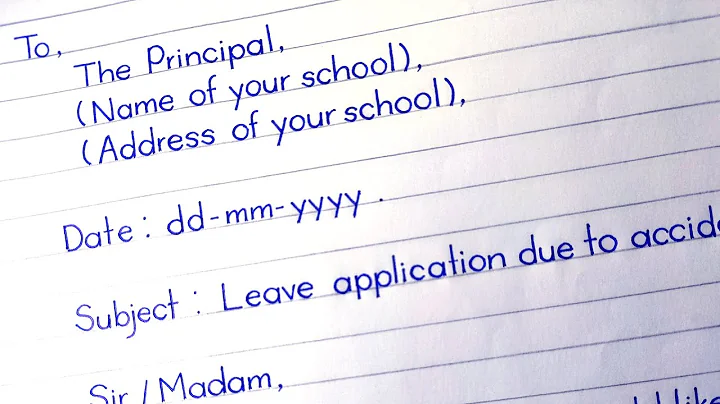 To,
The Principal,
(Name of your school),
(Address of your school),
Date : dd-mm-yyyy.
Subject : Leave application due to
Sir / Madam,